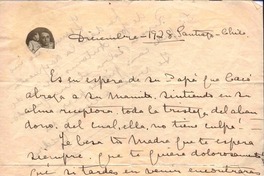 Diciembre - 1928. Santiago - Chile.
Es en espera de su Papá que Cacó
abraza a su Mamita, sintiendo en su
alma receptora, toda la tristeza del aban
dono, del cual, ella, no tiene culpa!
Te besa tu Madre que te espera
siempre, que te quiere dolorosamente
que si tardas en venir encontrarás